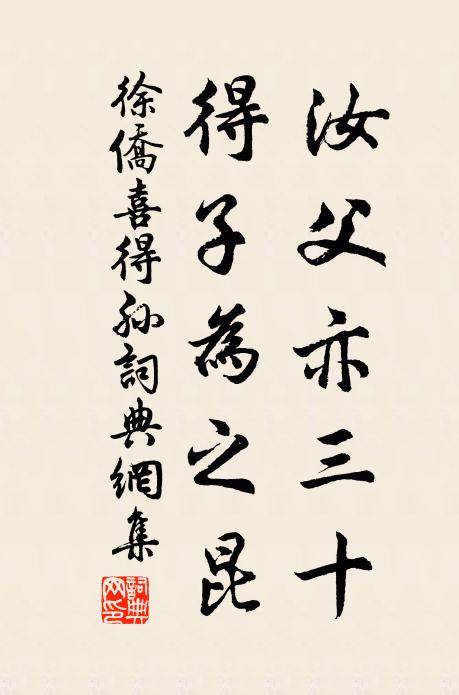 汝父亦三十
得子為之昆
徐僑喜得孙詞典網集
詞典网印